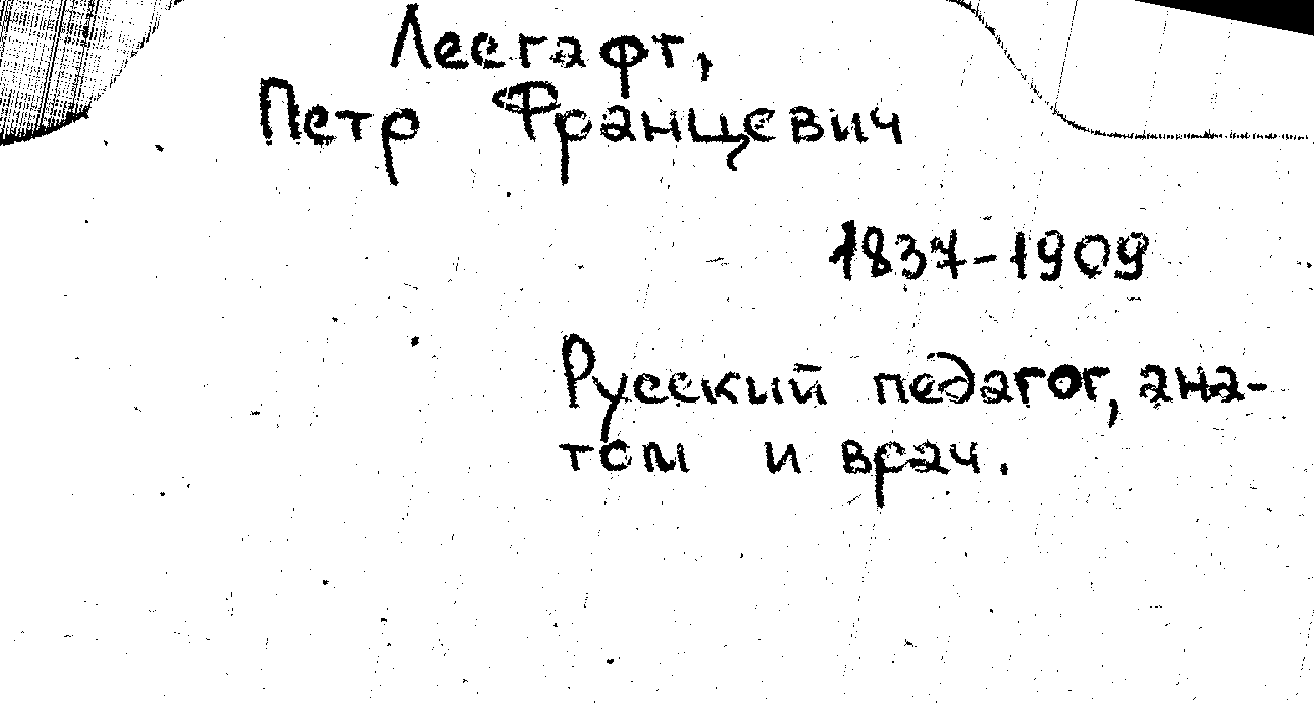 Лесгафт,
Петр Францевич
1837-1909
Русский педагог, ана-
том и врач.